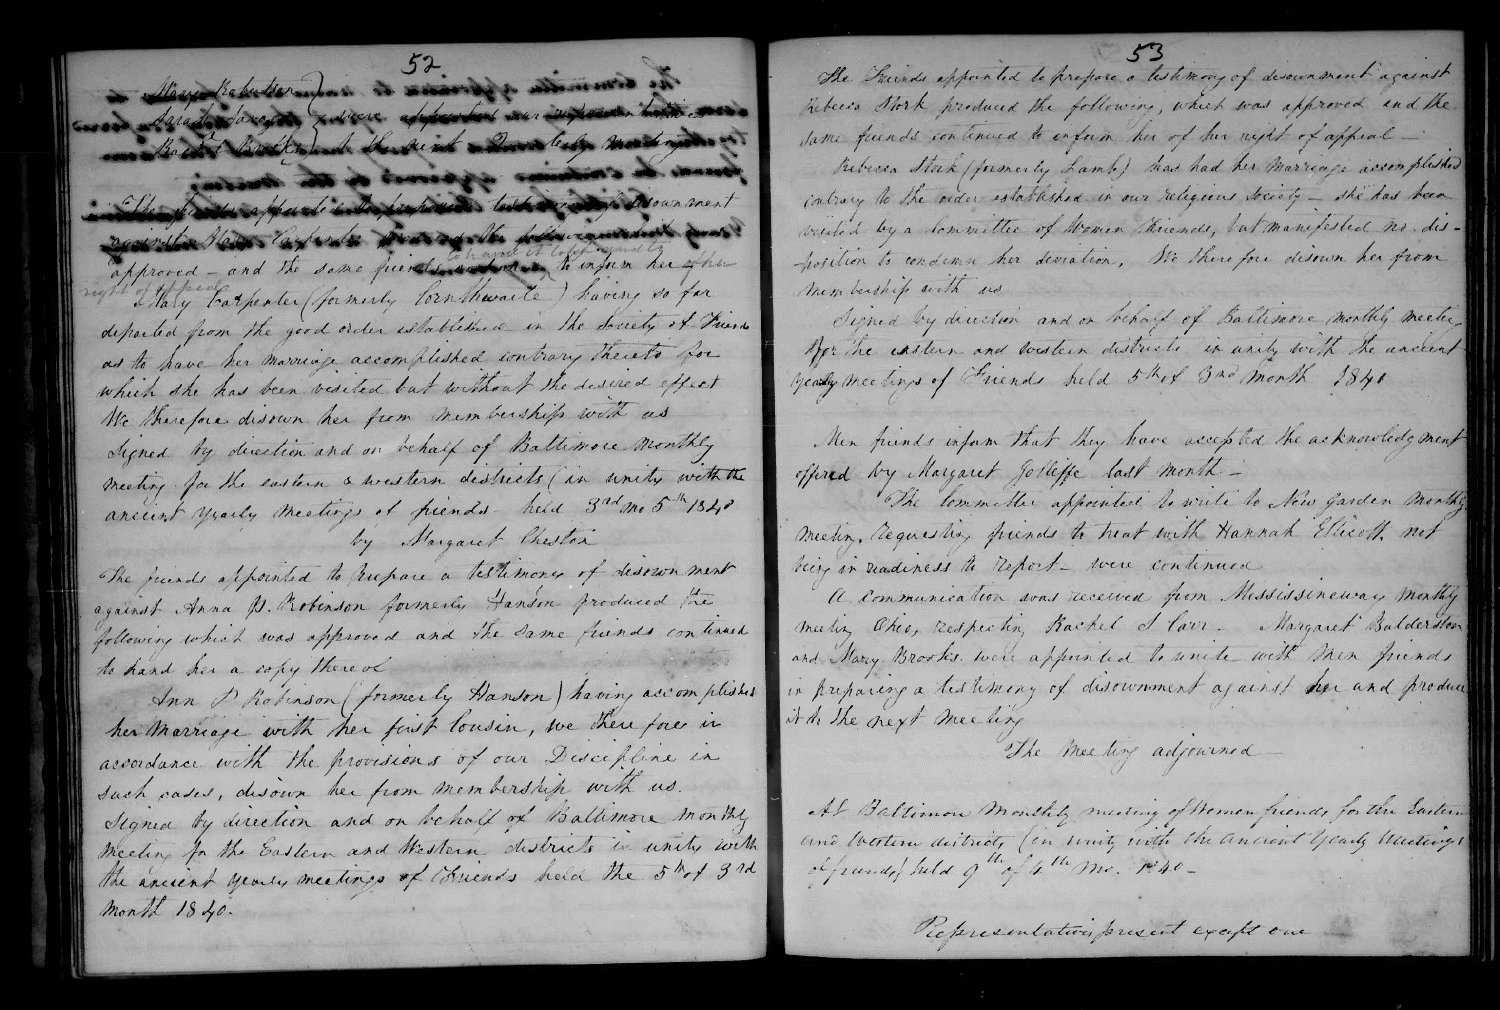 52
Mary Robertson
Sarah were appointed our representatives
Rachel to the next Quarterly meeting
The friends appointed to prepare a testimony of disownment
against Mary Carpenter produced the following
approved - and the same friends to hand it to her and to to inform her of her
right of appeal
Mary Carpenter (formerly Cornthwaite) having so far
departed from the good order established in the Society of Friends
as to have her marriage accomplished contrary thereto for
which she has been visited but without the desired effect
We therefore disown her from membership with us
Signed by direction and on behalf of Baltimore monthly
meeting for the eastern & western districts (in unity with the
ancient yearly meetings of friends held 3rd mo 5th 1840
by Margaret Cheston
The friends appointed to prepare a testimony of disownment
against Anna P. Robinson formerly Hanson produced the
following which was approved and the same friends continued
to hand her a copy thereof
Ann P Robinson (formerly Hanson) having accomplished
her marriage with her first Cousin, we therefore in
accordance with the provisions of our Discipline in
such cases, disown her from membership with us.
Signed by direction and on behalf of Baltimore monthly
meeting for the Eastern and Western districts in unity with
the ancient yearly meetings of Friends held the 5th of 3rd
month 1840.
53
The Friends appointed to prepare a testimony of disownment against
Rebecca Stork produced the following, which was approved and the
same friends continued to inform her of her right of appeal —
Rebecca Stork (formerly Lamb) has had her marriage accomplished
contrary to the order established in our religious Society — she has been
visited by a Committee of Women Friends, but manifested no dis-
-position to condemn her deviation, We therefore disown her from
membership with us
Signed by direction and on behalf of Baltimore monthly meeting
for the eastern and western districts in unity with the ancient
yearly meetings of Friends held 5th of 3rd month 1840
Men friends inform that they have accepted the acknowledgment
offered by Margaret last month —
The Committee appointed to write to New Garden Monthly
meeting, requesting friends to treat with Hannah Ellicott, not
being in readiness to report - were continued
A communication was received from Mississineway Monthly
meeting Ohio, respecting Rachel I Carr. Margaret Balderston
and Mary Brooks were appointed to unite with men friends
in preparing a testimony of disownment against her and produce
it to the next meeting
The meeting adjourned —
At Baltimore Monthly meeting of Women friends for the Eastern
and Western districts (in unity with the ancient Yearly Meetings
of friends) held 9th of 4th mo. 1840 -
Representatives present except one